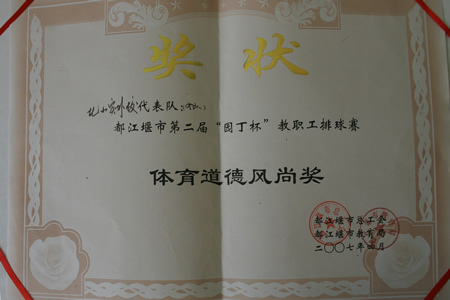 奖状
北小实外校代表队
都江堰市第二届“园丁杯”教职工排球赛
体育道德风尚奖
都江堰市总工会
都江堰市教育局
二〇〇七年四月